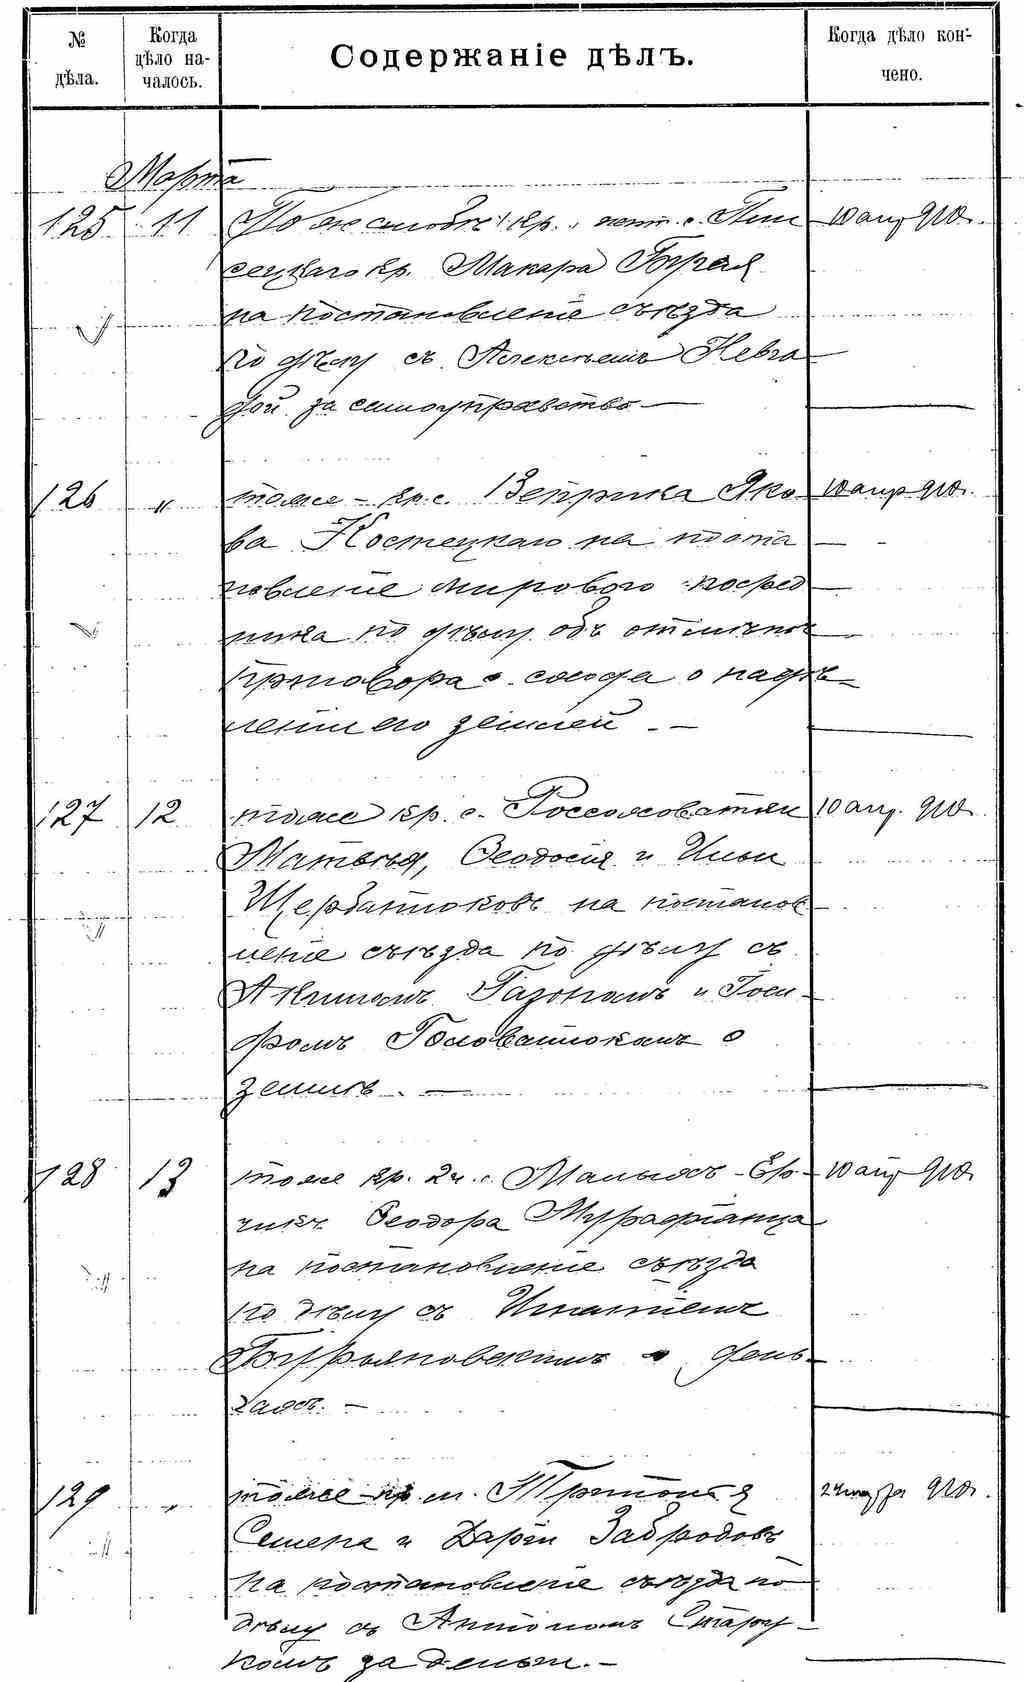 № дѣла.
Когда дѣло началось.
Содержаніе дѣлъ.
Когда дѣло кончено.
Марта
125 11 По жалобѣ кр. с. Пи- 10 апр 910.
сецкаго кр. Макара
на постановленіе съѣзда
по дѣлу съ Алексѣемъ Невга-
дой за самоуправство —
126 " тоже - кр. с. Веприка Яко- 10 апр 910.
ва Костецкаго на поста
новленіе мирового посред
ника по дѣлу объ отмѣнѣ
приговора схода о надѣ-
леніи его землей. —
127 12 тоже кр. с. Россоховатки 10 апр. 910.
Матвѣя, Ѳеодосія и Ильи
Щербатюковъ на постанов-
леніе съѣзда по дѣлу съ
Акимомъ и Іоси-
фомъ Головатюкомъ о
землѣ. —
128 13 тоже кр. 2 ч. с. Малыхъ-Ер- 10 апр 910.
чикъ Ѳеодора Мурафанца
на постановленіе съѣзда
по дѣлу съ Игнатіемъ
Бурьяновскимъ о день-
гахъ. —
129 " тоже кр. м. 24 марта 910.
Семена и Дарьи Забродовъ
на постановленіе съѣзда по
дѣлу съ Антономъ Стару-
комъ за деньги. —